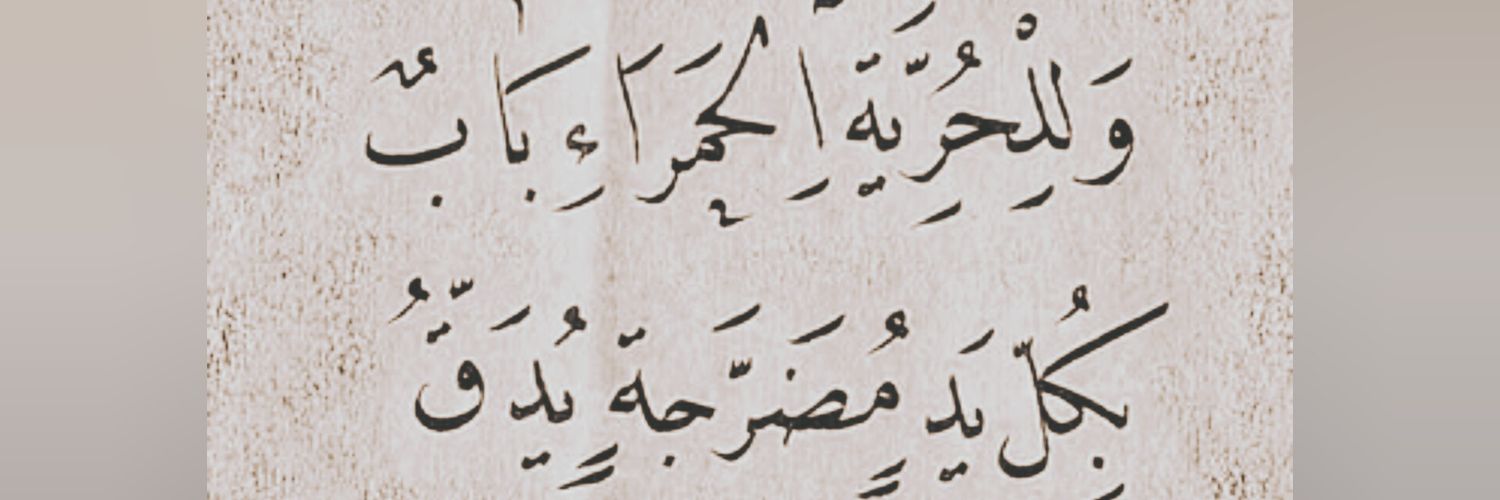 وَلِلْحُرِّيَّةِ الْحَمَرَاءِ بَابٌ
بِكُلِّ يَدٍ مُضَرَّجَةٍ يُدَقُّ